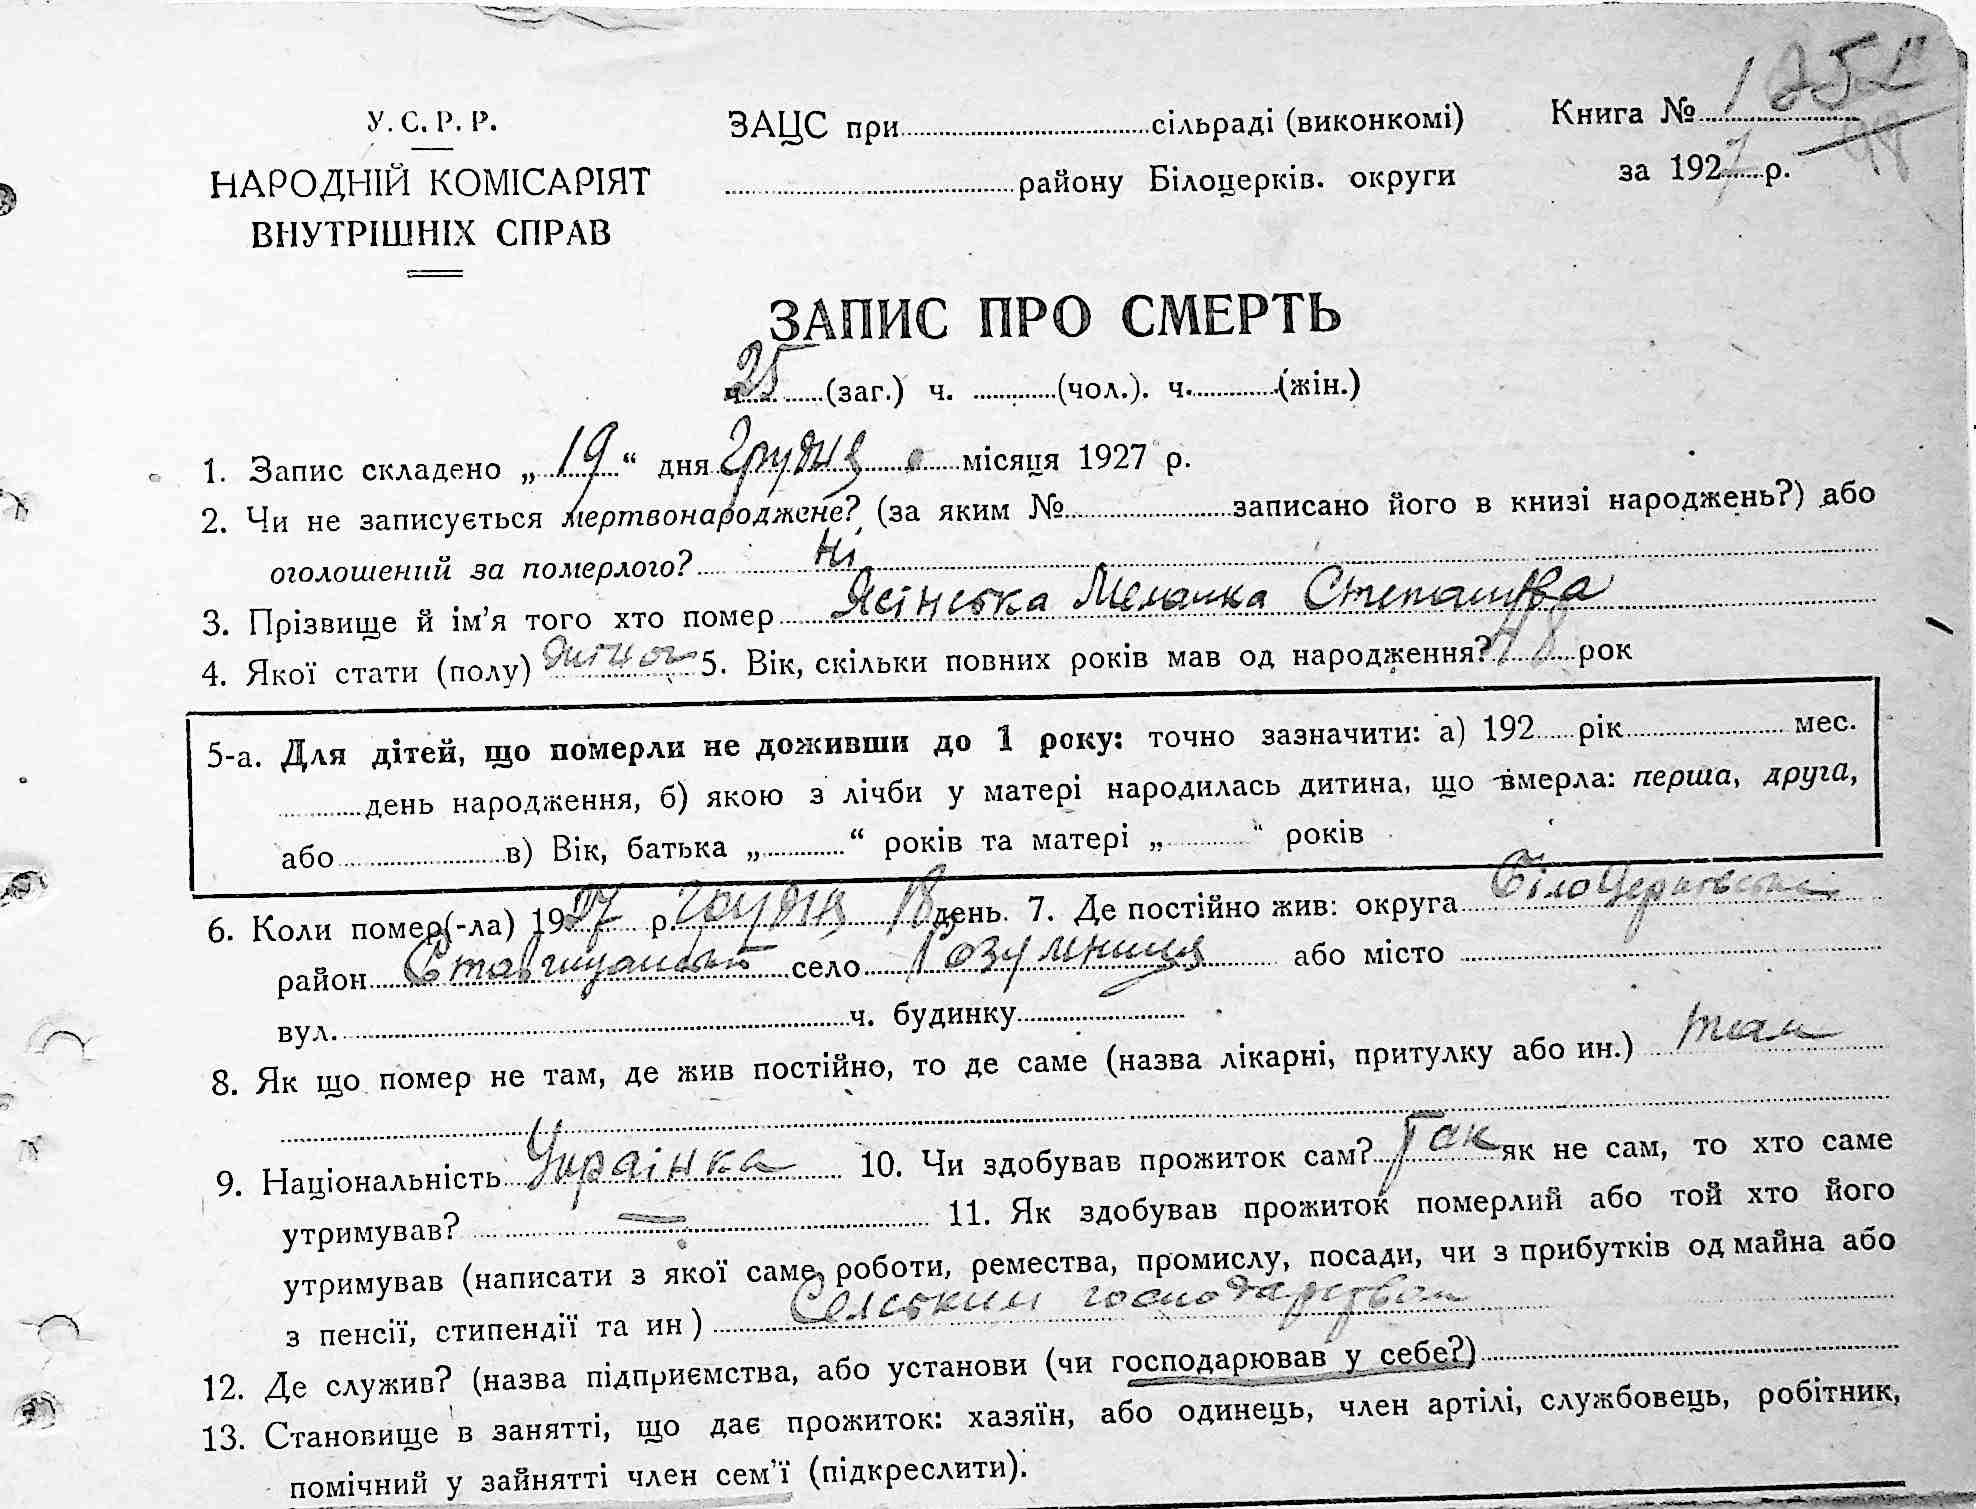 У. С. Р. Р.
НАРОДНІЙ КОМІСАРІЯТ
ВНУТРІШНІХ СПРАВ
ЗАЦС при сільраді (виконкомі)
району Білоцерків. округи
Книга № 1
за 1927 р.
ЗАПИС ПРО СМЕРТЬ
ч. 25 (заг.) ч. (чол.). ч. (жін.)
1. Запис складено „19“ дня Грудня місяця 1927 р.
2. Чи не записується мертвонароджене? (за яким № записано його в книзі народжень?) або
оголошений за померлого? Ні
3. Прізвище й ім'я того хто помер Ясінська Меланка Степанова
4. Якої стати (полу) 5. Вік, скільки повних років мав од народження? 48 рок
5-а. Для дітей, що померли не доживши до 1 року: точно зазначити: а) 192 рік мес.
день народження, б) якою з лічби у матері народилась дитина, що вмерла: перша, друга,
або в) Вік, батька „ “ років та матері „ “ років
6. Коли помер(-ла) 1927 р. Грудня 18 день. 7. Де постійно жив: округа Білоцерківська
район Ставищанський село Розумниця або місто
вул. ч. будинку
8. Як що помер не там, де жив постійно, то де саме (назва лікарні, притулку або ин.) там
9. Національність Українка 10. Чи здобував прожиток сам? Так як не сам, то хто саме
утримував? — 11. Як здобував прожиток померлий або той хто його
утримував (написати з якої саме роботи, ремества, промислу, посади, чи з прибутків од майна або
з пенсії, стипендії та ин) Сельским господарством
12. Де служив? (назва підприємства, або установи (чи господарював у себе?)
13. Становище в занятті, що дає прожиток: хазяїн, або одинець, член артілі, службовець, робітник,
помічний у зайнятті член сем'ї (підкреслити).